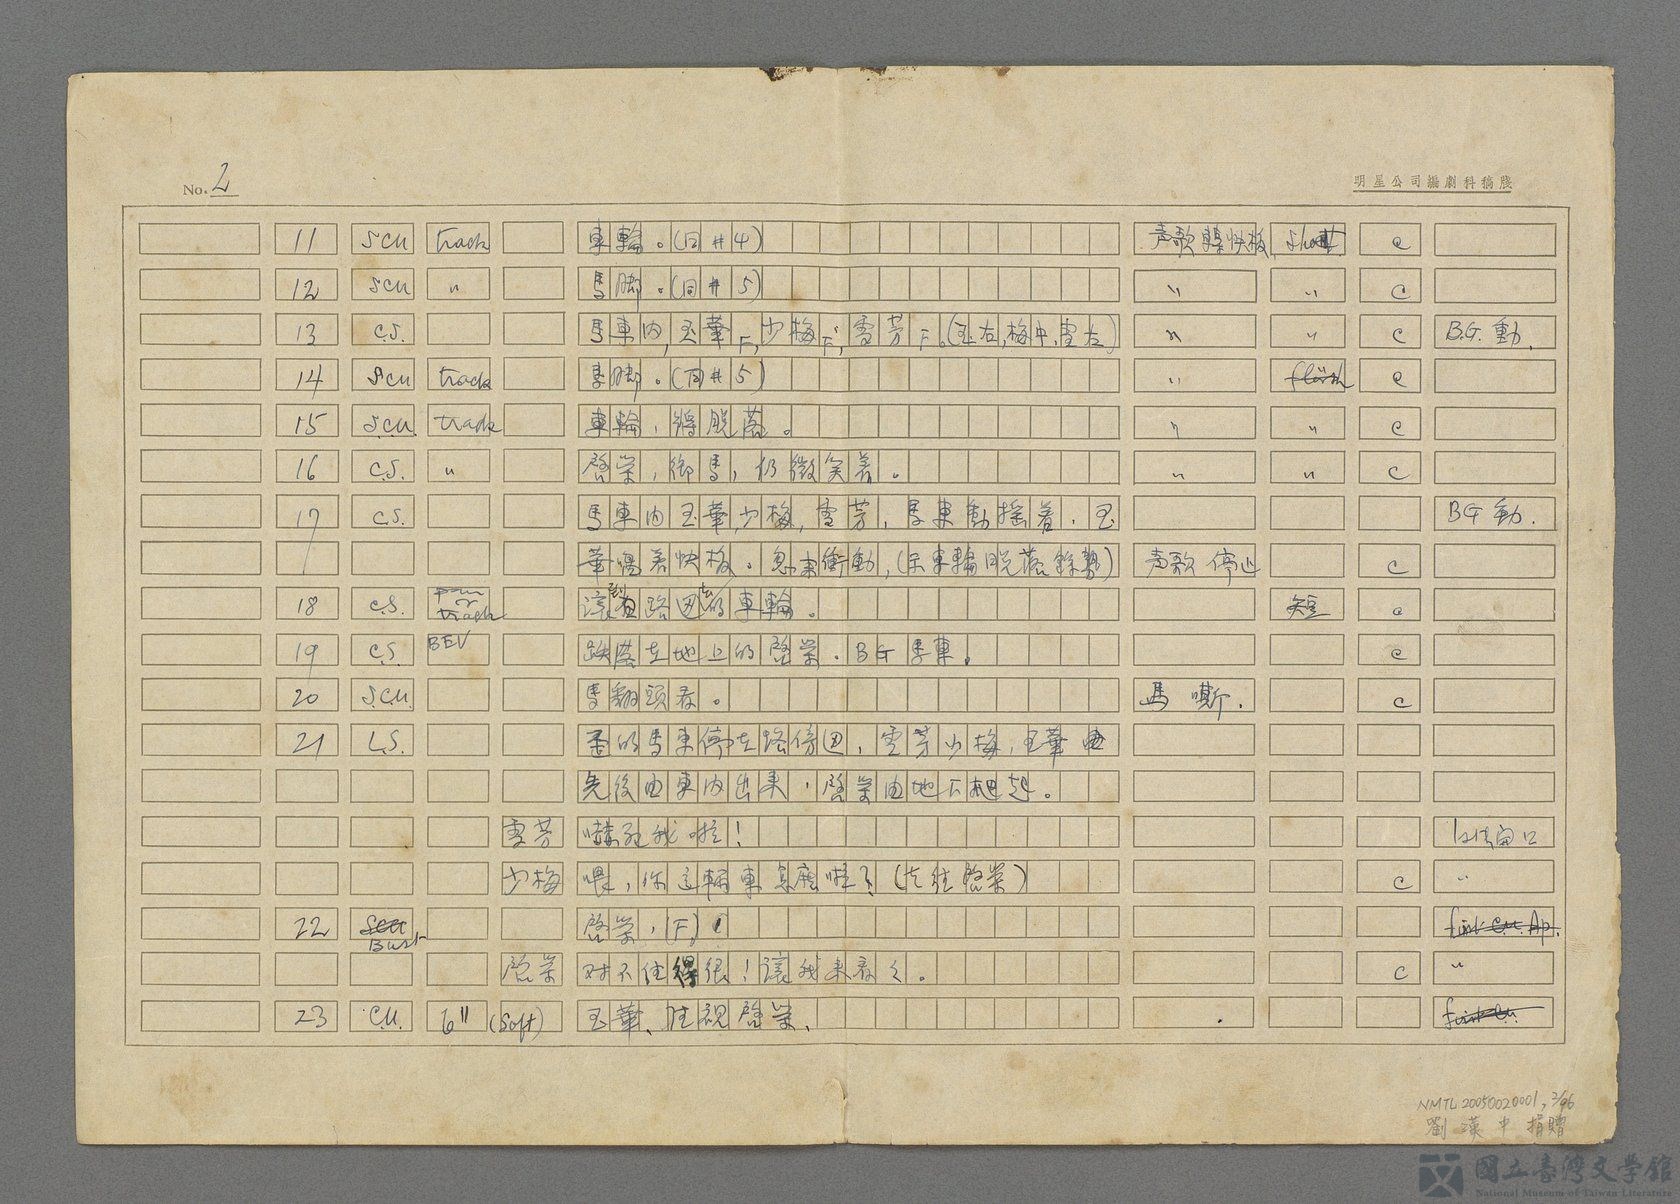 No. 2
明星公司編劇科稿牋
11 S.C.U track 車輪。(同#4) 声歌 快板 c
12 S.C.U 〃 馬脚。(同#5) 〃 〃 c
13 C.S. 馬車内,玉華F,少梅F,雪芳F。(玉右,梅中,雪左) 〃 〃 c B.G.動.
14 S.C.U track 馬脚。(同#5) 〃 flash c
15 S.C.U. track 車輪,將脫落。 〃 〃 c
16 C.S. 〃 啓榮,御馬,仍微笑着。 〃 〃 c
17 C.S. 馬車内玉華,少梅,雪芳,馬車動搖着.玉 BG動.
華唱着快板。忽来衝動,(示車輪脫落餘勢) 声歌停止 c
18 C.S. pan or track 滾 路辺 的車輪。 短 c
19 C.S. BEV 跌落在地上的啓榮.BG馬車。 c
20 S.C.U. 馬翻頭看。 馬嘶. c
21 L.S. 歪的馬車停在路傍辺,雪芳少梅,玉華
先後由車内出来,啓榮由地下 起。
雪芳 嚇死我啦!
少梅 喂,你這輛車怎麽啦?(片往啓榮) c 〃
22 S.C.U Bust 啓榮,(F)
啓榮 対不住得很!讓我来看々。 c 〃
23 C.U. 6" (Soft) 玉華、注視啓榮.
NMTL20050020001, 2/96
劉漢中 捐贈
國立臺灣文學館
National Museum of Taiwan Literature